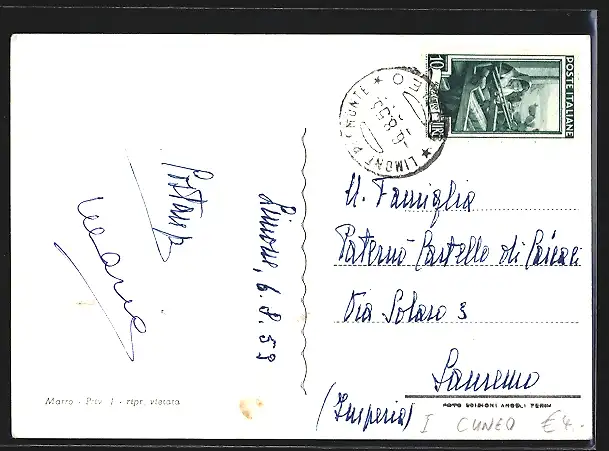 POSTE ITALIANE
10
LIRE
LIMONE PIEMONTE
-6.8.53
Limone, 6.8.53
N. Famiglia
Paternò Castello di Carcaci
Via Solaro 3
Sanremo
(Imperia)
Marro - Priv. 1 - ripr. vietata
FOTO EDIZIONI ANGELI TERIN
I CUNEO €4.-